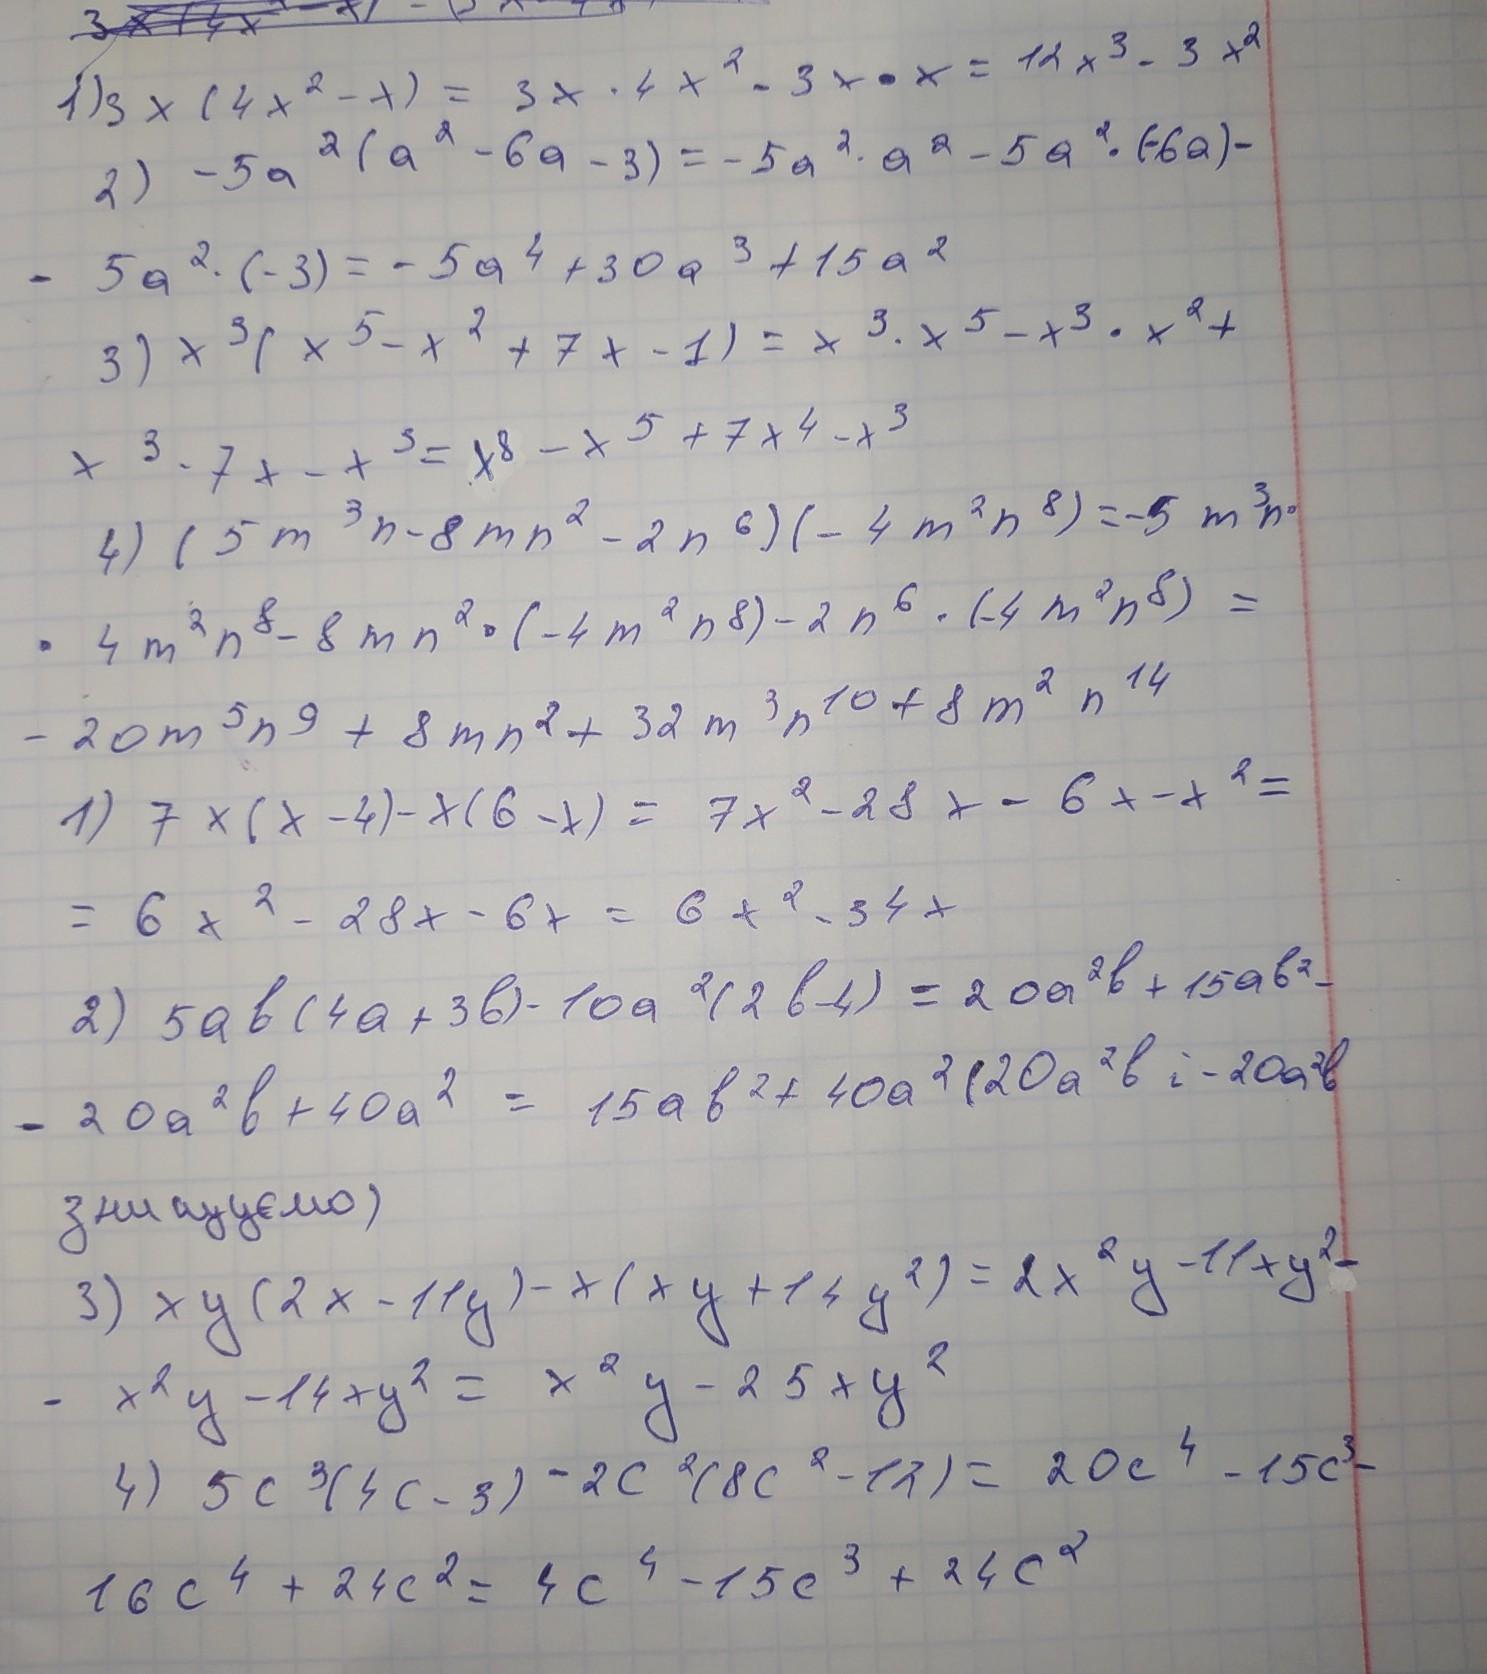 1) 3x(4x² - x) = 3x · 4x² - 3x · x = 12x³ - 3x²
2) -5a²(a² - 6a - 3) = -5a² · a² - 5a² · (-6a) -
- 5a² · (-3) = -5a⁴ + 30a³ + 15a²
3) x³(x⁵ - x² + 7x - 1) = x³ · x⁵ - x³ · x² +
x³ · 7x - x³ = x⁸ - x⁵ + 7x⁴ - x³
4) (5m³n - 8mn² - 2n⁶)(-4m²n⁸) = -5m³n ·
· 4m²n⁸ - 8mn² · (-4m²n⁸) - 2n⁶ · (-4m²n⁸) =
- 20m⁵n⁹ + 8mn² + 32m³n¹⁰ + 8m²n¹⁴
1) 7x(x - 4) - x(6 - x) = 7x² - 28x - 6x - x² =
= 6x² - 28x - 6x = 6x² - 34x
2) 5ab(4a + 3b) - 10a²(2b - 4) = 20a²b + 15ab² -
- 20a²b + 40a² = 15ab² + 40a² (20a²b і -20a²b
знищуємо)
3) xy(2x - 11y) - x(xy + 14y²) = 2x²y - 11xy² -
- x²y - 14xy² = x²y - 25xy²
4) 5c³(4c - 3) - 2c²(8c² - 12) = 20c⁴ - 15c³ -
16c⁴ + 24c² = 4c⁴ - 15c³ + 24c²